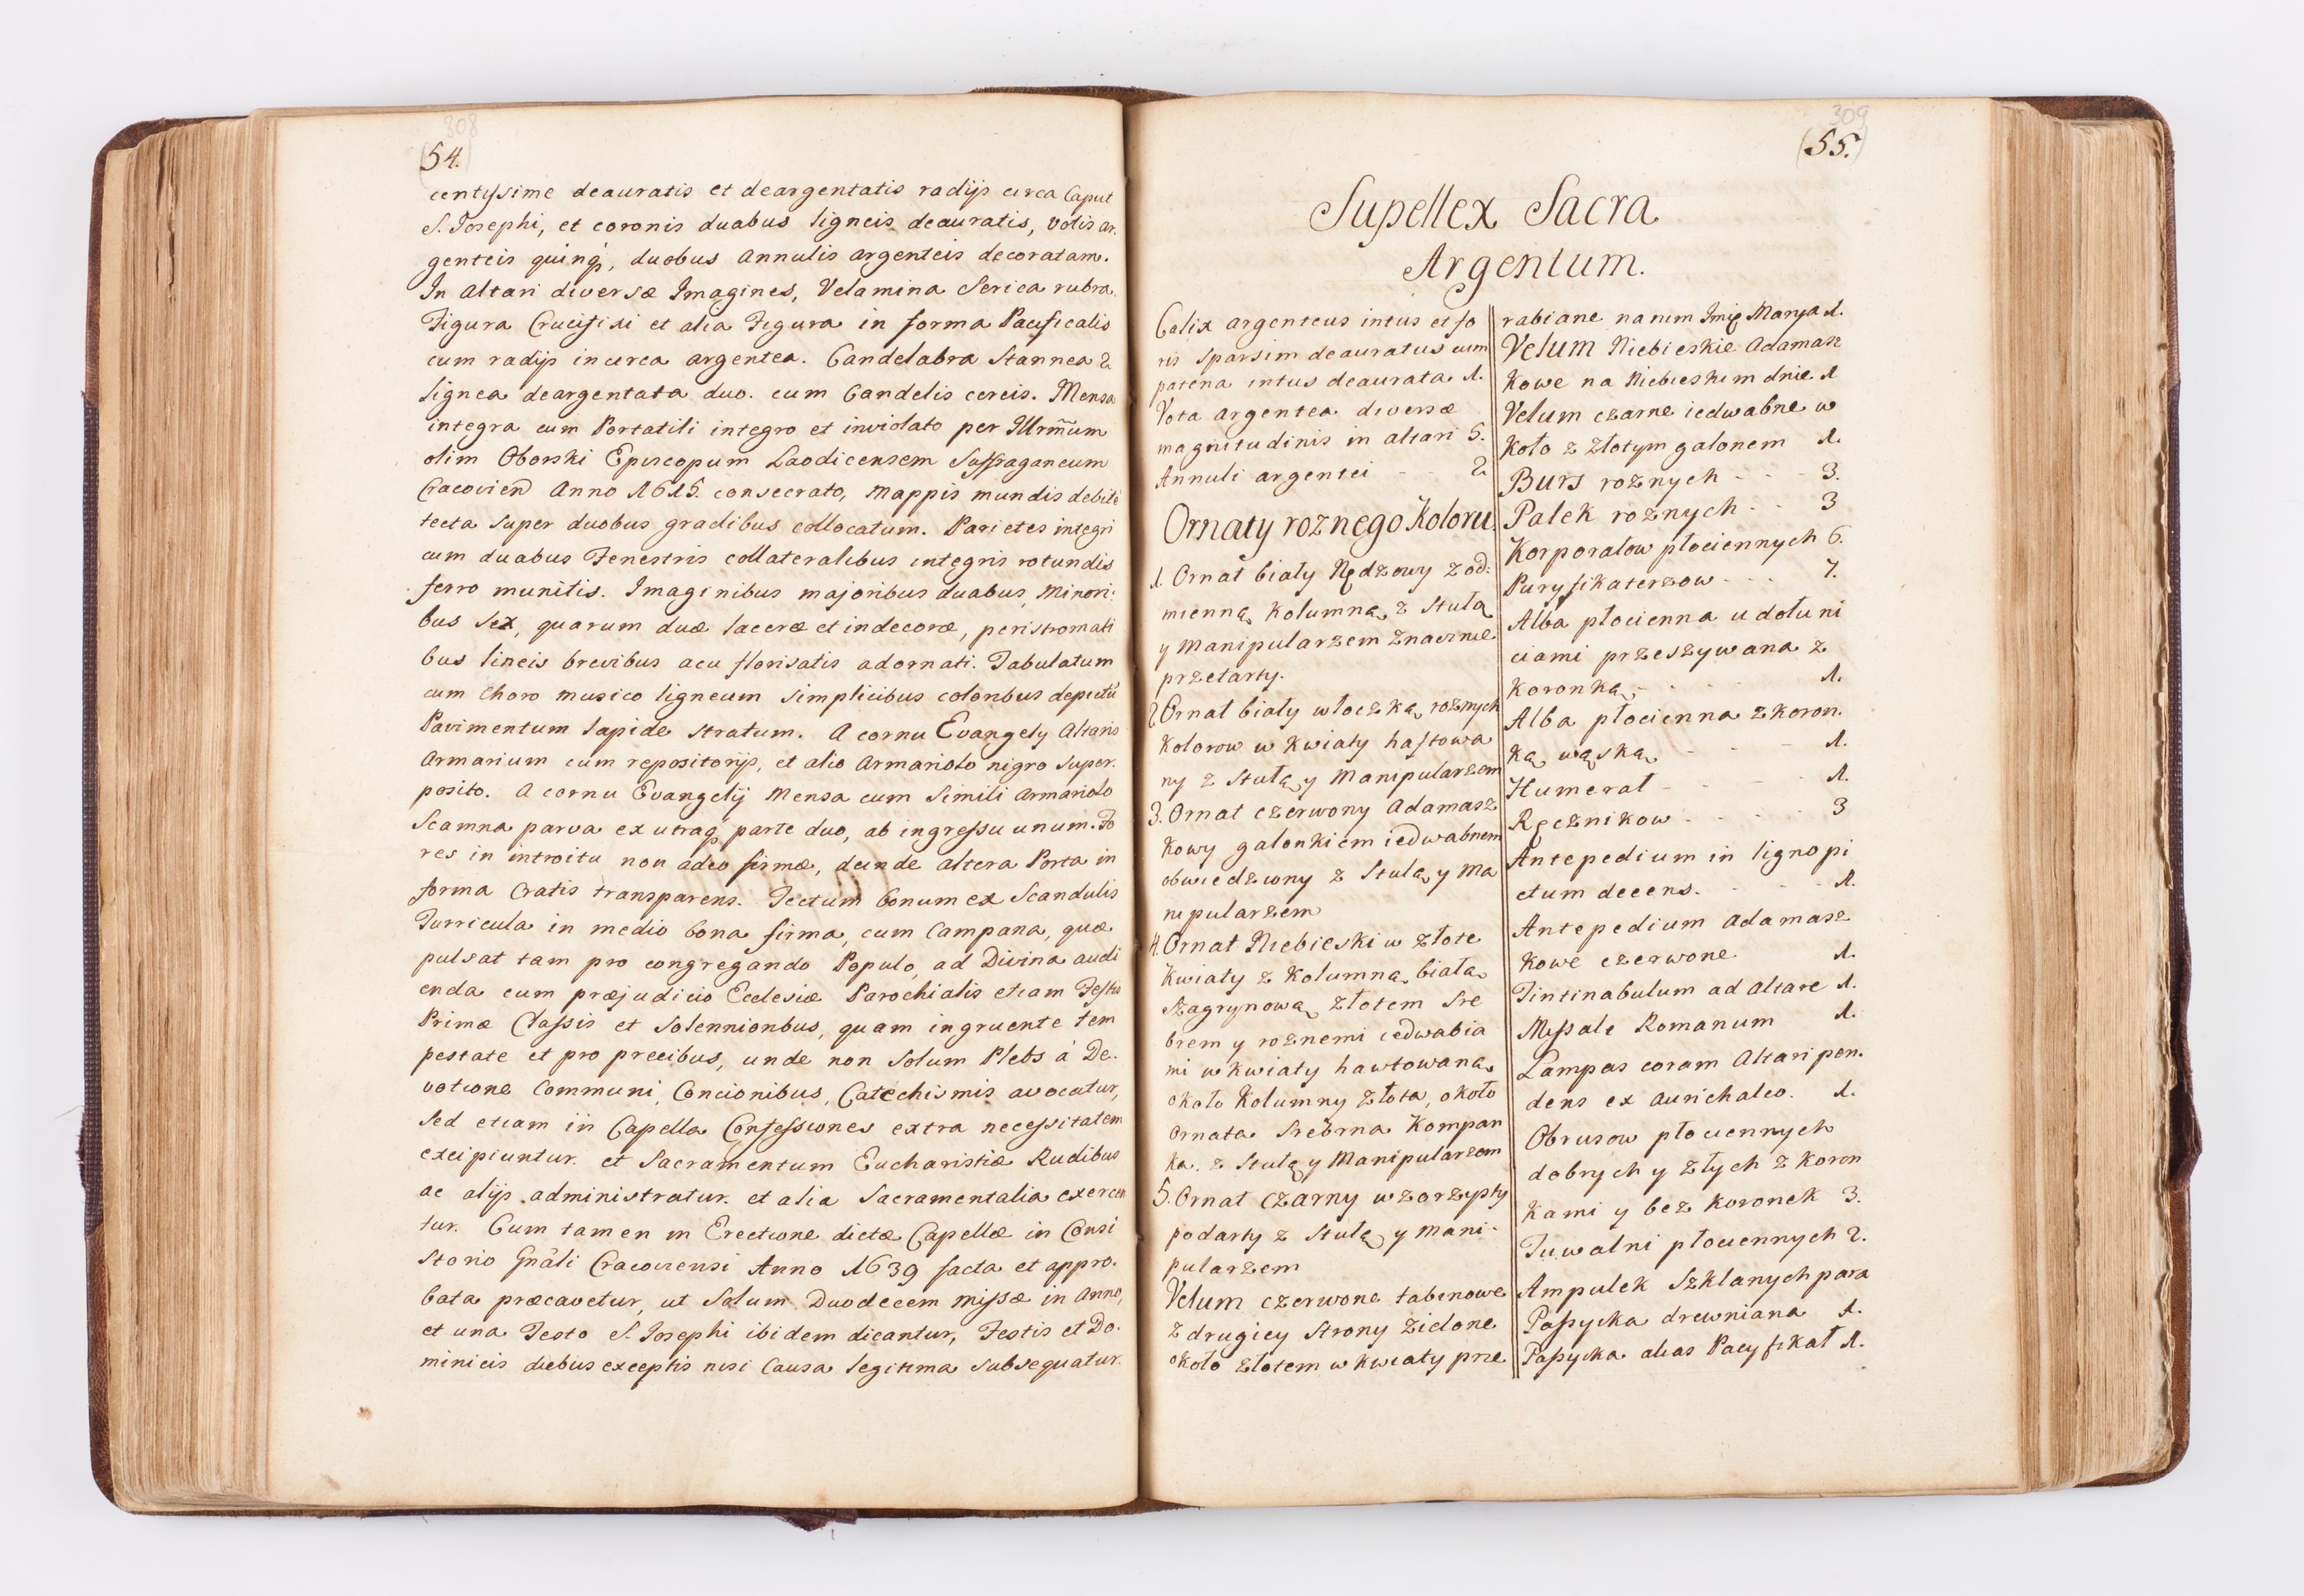 308
54.
centissime deauratis et deargentatis radijs circa Caput
S. Josephi, et coronis duabus ligneis deauratis, votis ar-
genteis quinq, duobus annulis argenteis decoratam.
In altari diversæ Imagines, Velamina Serica rubra,
Figura Crucifixi et alia Figura in forma Pacificalis
cum radijs in circa argentea. Candelabra Stannea 2
lignea deargentata duo. cum Candelis cereis. Mensa
integra cum Portatili integro et inviolato per Illrm̃um
olim Oborski Episcopum Laodicensem Suffraganeum
Cracovien Anno 1615. consecrato, mappis mundis debite
tecta super duobus gradibus collocatum. Parietes integri
cum duabus Fenestris collateralibus integris rotundis
ferro munitis. Imaginibus majoribus duabus, Minori:
bus Sex, quarum duæ laceræ et indecoræ, peristromati
bus lineis brevibus acu florisatis adornati. Tabulatum
cum Choro musico ligneum simplicibus coloribus depictū
Pavimentum lapide stratum. A cornu Evangely Altaris
Armarium cum repositorijs, et alio Armariolo nigro super-
posito. A cornu Evangelij Mensa cum Simili armariolo
Scamna parva ex utraq parte duo, ab ingressu unum. Fo
res in introitu non adeo firmæ, deinde altera Porta in
forma Cratis transparens. Tectum bonum ex Scandulis
Turricula in medio bona firma, cum Campana, quæ
pulsat tam pro congregando Populo, ad Divina audi
enda cum præjudicio Ecclesiæ Parochialis etiam Festis
Primæ Classis et Solennioribus, quam ingruente tem
pestate et pro precibus, unde non solum Plebs á De-
votione Communi, Concionibus, Catechismis avocatur,
sed etiam in Capella Confessiones extra necessitatem
excipiuntur. et Sacramentum Eucharistiæ Rudibus
ac alijs administratur. et alia Sacramentalia exercen
tur. Cum tamen in Erectione dictæ Capellæ in Consi
storio Gnāli Cracoviensi Anno 1639 facta et appro-
bata præcavetur, ut Solum Duodecem missæ in Anno,
et una Festo S. Josephi ibidem dicantur, Festis et Do-
minicis diebus exceptis nisi Causa legitima subsequatur.
309
(55.)
Supellex Sacra
Argentum.
Calix argenteus intus et fo
ris Sparsim deauratus cum
patena intus deaurata 1.
Vota argentea diversæ
magnitudinis in altari 5.
Annuli argentei - - 2
Ornaty roznego Koloru
1. Ornat biały Rędzowy z od:
mienną Kolumną, z Stułą
y Manipularzem znacznie
przetarty.
2 Ornat biały włoczką roznych
Kolorow w Kwiaty haftowa
ny z Stułą y Manipularzem
3. Ornat czerwony Adamasz
Kowy galonkiem iedwabnem
obwiedziony z Stułą y Ma
nipularzem
4. Ornat Niebieski w złote
Kwiaty z Kolumną białą
szagrynową złotem Sre
brem y roznemi iedwabia
mi w kwiaty hawtowaną
około Kolumny złota, około
Ornata Srebrna Kompan
ka. z Stułą y Manipularzem
5. Ornat Czarny wzorzysty
podarty z Stułą y Mani-
pularzem
Velum czerwone tabinowe
z drugiey Strony zielone
około złotem w kwiaty prze
rabiane na nim Imię Marya 1.
Velum Niebieskie Adamasz
Kowe na Niebieskim dnie 1
Velum czarne iedwabne w
Koło z złotym galonem 1.
Burs roznych - - - 3.
Palek roznych - - 3
Korporałow płociennych 6.
Puryfikaterzow - - - 7.
Alba płocienna u dołu ni
ciami przeszywana z
Koronką - - - 1.
Alba płocienna z koron-
Ką wąską - - - 1.
Humerał - - - 1.
Ręcznikow - - - - 3
Antepedium in ligno pi
ctum decens. - - - 1.
Antepedium Adamasz
Kowe czerwone 1.
Tintinabulum ad Altare 1.
Missale Romanum 1.
Lampas coram Altari pen-
dens ex aurichalco. 1.
Obrusow płociennych
dobrych y złych z Koron
Kami y bez Koronek 3.
Tuwalni płociennych 2.
Ampułek Szklanych para
Passyika drewniana 1.
Passyika alias Pacyfikał 1.